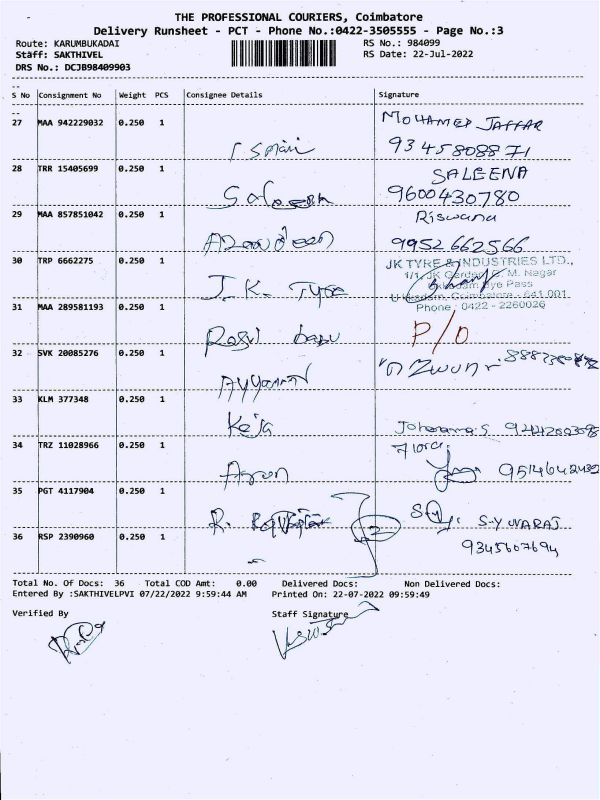 THE PROFESSIONAL COURIERS, Coimbatore
Delivery Runsheet - PCT - Phone No.:0422-3505555 - Page No.:3
Route: KARUMBUKADAI RS No.: 984099
Staff: SAKTHIVEL RS Date: 22-Jul-2022
DRS No.: DCJB98409903
S No Consignment No Weight PCS Consignee Details Signature
27 MAA 942229032 0.250 1 MOHAMED JAFFAR
93458088 71
28 TRR 15405699 0.250 1 SALEENA
9600430780
29 MAA 857851042 0.250 1 Riswana
9952662566
30 TRP 6662275 0.250 1 J.K. Tyre JK TYRE & INDUSTRIES LTD.,
1/1, JK Garden, M. Nagar
Bye Pass
Ukkadam, Coimbatore - 641 001
Phone : 0422 - 2260026
31 MAA 289581193 0.250 1 Rasul babu P/O
32 SVK 20085276 0.250 1
33 KLM 377348 0.250 1 Keja
34 TRZ 11028966 0.250 1 Arun 9514642432
35 PGT 4117904 0.250 1 R. S-YUVARAJ
36 RSP 2390960 0.250 1 9345607694
Total No. Of Docs: 36 Total COD Amt: 0.00 Delivered Docs: Non Delivered Docs:
Entered By :SAKTHIVELPVI 07/22/2022 9:59:44 AM Printed On: 22-07-2022 09:59:49
Verified By Staff Signature